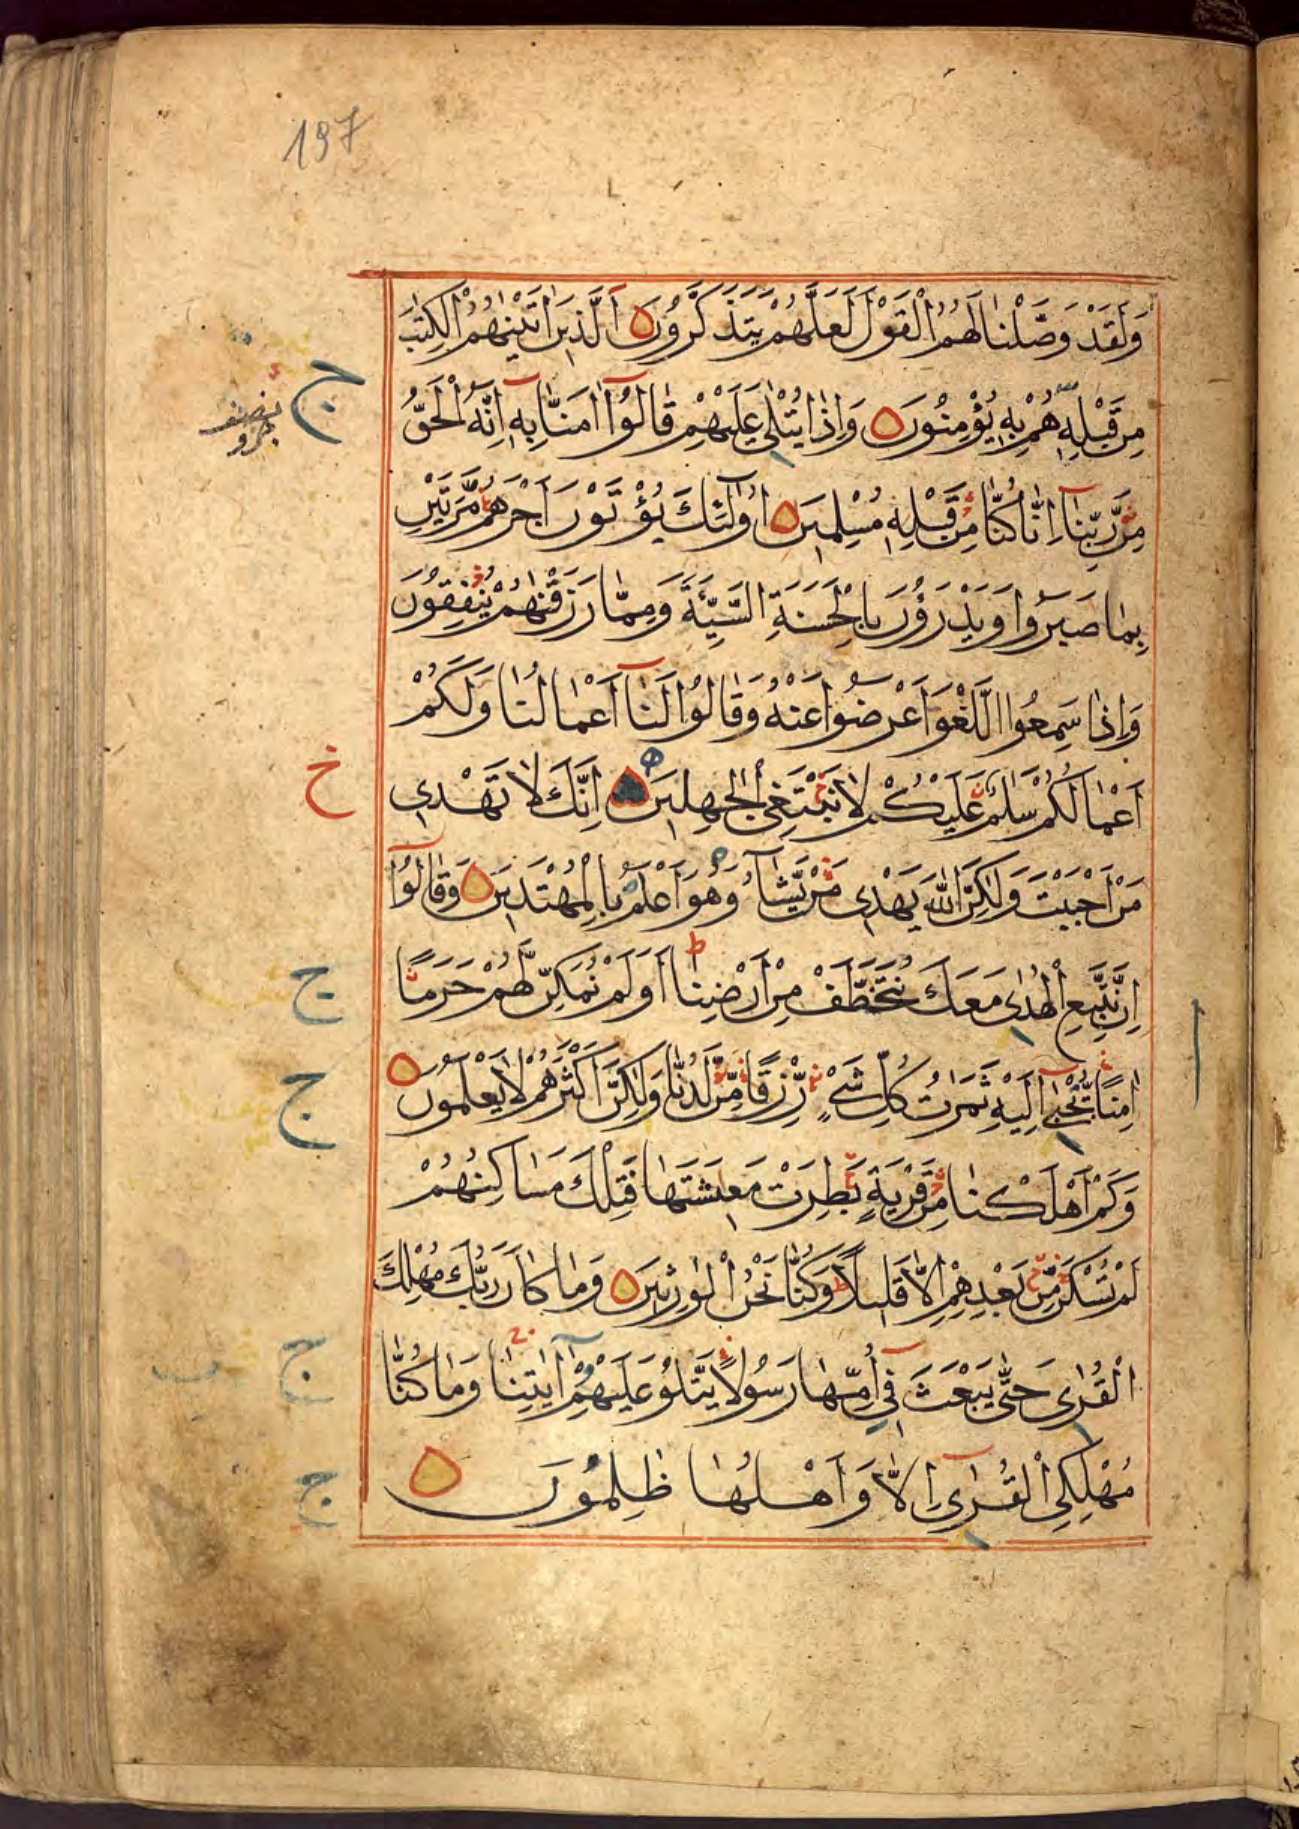 197
وَلَقَدْ وَصَّلْنَا لَهُمُ الْقَوْلَ لَعَلَّهُمْ يَتَذَكَّرُونَ اَلَّذِينَ اٰتَيْنٰهُمُ الْكِتٰبَ
مِنْ قَبْلِهٖ هُمْ بِهٖ يُؤْمِنُونَ وَاِذَا يُتْلٰى عَلَيْهِمْ قَالُوٓا اٰمَنَّا بِهٖٓ اِنَّهُ الْحَقُّ
مِنْ رَبِّنَآ اِنَّا كُنَّا مِنْ قَبْلِهٖ مُسْلِمِينَ اُولٰٓئِكَ يُؤْتَوْنَ اَجْرَهُمْ مَرَّتَيْنِ
بِمَا صَبَرُوا وَيَدْرَؤُنَ بِالْحَسَنَةِ السَّيِّئَةَ وَمِمَّا رَزَقْنٰهُمْ يُنْفِقُونَ
وَاِذَا سَمِعُوا اللَّغْوَ اَعْرَضُوا عَنْهُ وَقَالُوا لَنَآ اَعْمَالُنَا وَلَكُمْ
اَعْمَالُكُمْ سَلٰمٌ عَلَيْكُمْ لَا نَبْتَغِى الْجٰهِلِينَ اِنَّكَ لَا تَهْدِى
مَنْ اَحْبَبْتَ وَلٰكِنَّ اللّٰهَ يَهْدِى مَنْ يَشَآءُ وَهُوَ اَعْلَمُ بِالْمُهْتَدِينَ وَقَالُوٓا
اِنْ نَتَّبِعِ الْهُدٰى مَعَكَ نُتَخَطَّفْ مِنْ اَرْضِنَا ط اَوَلَمْ نُمَكِّنْ لَهُمْ حَرَمًا
اٰمِنًا يُجْبٰٓى اِلَيْهِ ثَمَرٰتُ كُلِّ شَىْءٍ رِزْقًا مِنْ لَدُنَّا وَلٰكِنَّ اَكْثَرَهُمْ لَا يَعْلَمُونَ
وَكَمْ اَهْلَكْنَا مِنْ قَرْيَةٍ بَطِرَتْ مَعِيشَتَهَا فَتِلْكَ مَسَاكِنُهُمْ
لَمْ تُسْكَنْ مِنْ بَعْدِهِمْ اِلَّا قَلِيلًا ط وَكُنَّا نَحْنُ الْوٰرِثِينَ وَمَا كَانَ رَبُّكَ مُهْلِكَ
الْقُرٰى حَتّٰى يَبْعَثَ فِىٓ اُمِّهَا رَسُولًا يَتْلُو عَلَيْهِمْ اٰيٰتِنَا وَمَا كُنَّا
مُهْلِكِى الْقُرٰىٓ اِلَّا وَاَهْلُهَا ظٰلِمُونَ
ج
خ
ج
ج
ج
ج